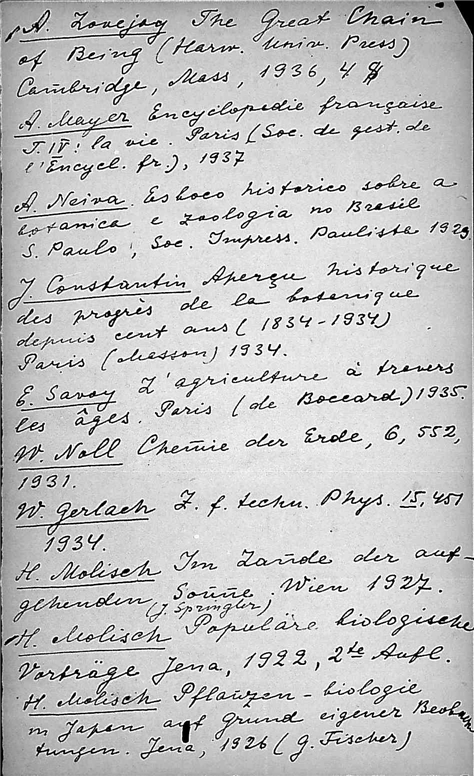 A. Lovejoy The Great Chain
of Being (Harw. Univ. Press)
Cambridge, Mass, 1936, 4 $
A. Mayer Encyclopedie française
T. IV: la vie. Paris (Soc. de gest. de
l'Encycl. fr.), 1937
A. Neiva. Esboco historico sobre a
botanica e zoologia no Brasil
S. Paulo, Soc. Impress. Paulista 1929
J. Constantin Aperçu historique
des progrès de la botenique
depuis cent ans (1834-1934)
Paris (Masson) 1934.
E. Savoy L'agriculture à travers
les âges. Paris (de Boccard) 1935.
W. Noll Chemie der Erde, 6, 552,
1931.
W. Gerlach Z. f. techn. Phys. 15, 451
1934.
H. Molisch Im Lande der auf-
gehenden Sonne. Wien 1927.
(J. Springler)
H. Molisch Populäre biologische
Vorträge Jena, 1922, 2te Aufl.
H. Molisch Pflanzen-biologie
in Japan auf Grund eigener Beobach
tungen. Jena, 1926 (G. Fischer)